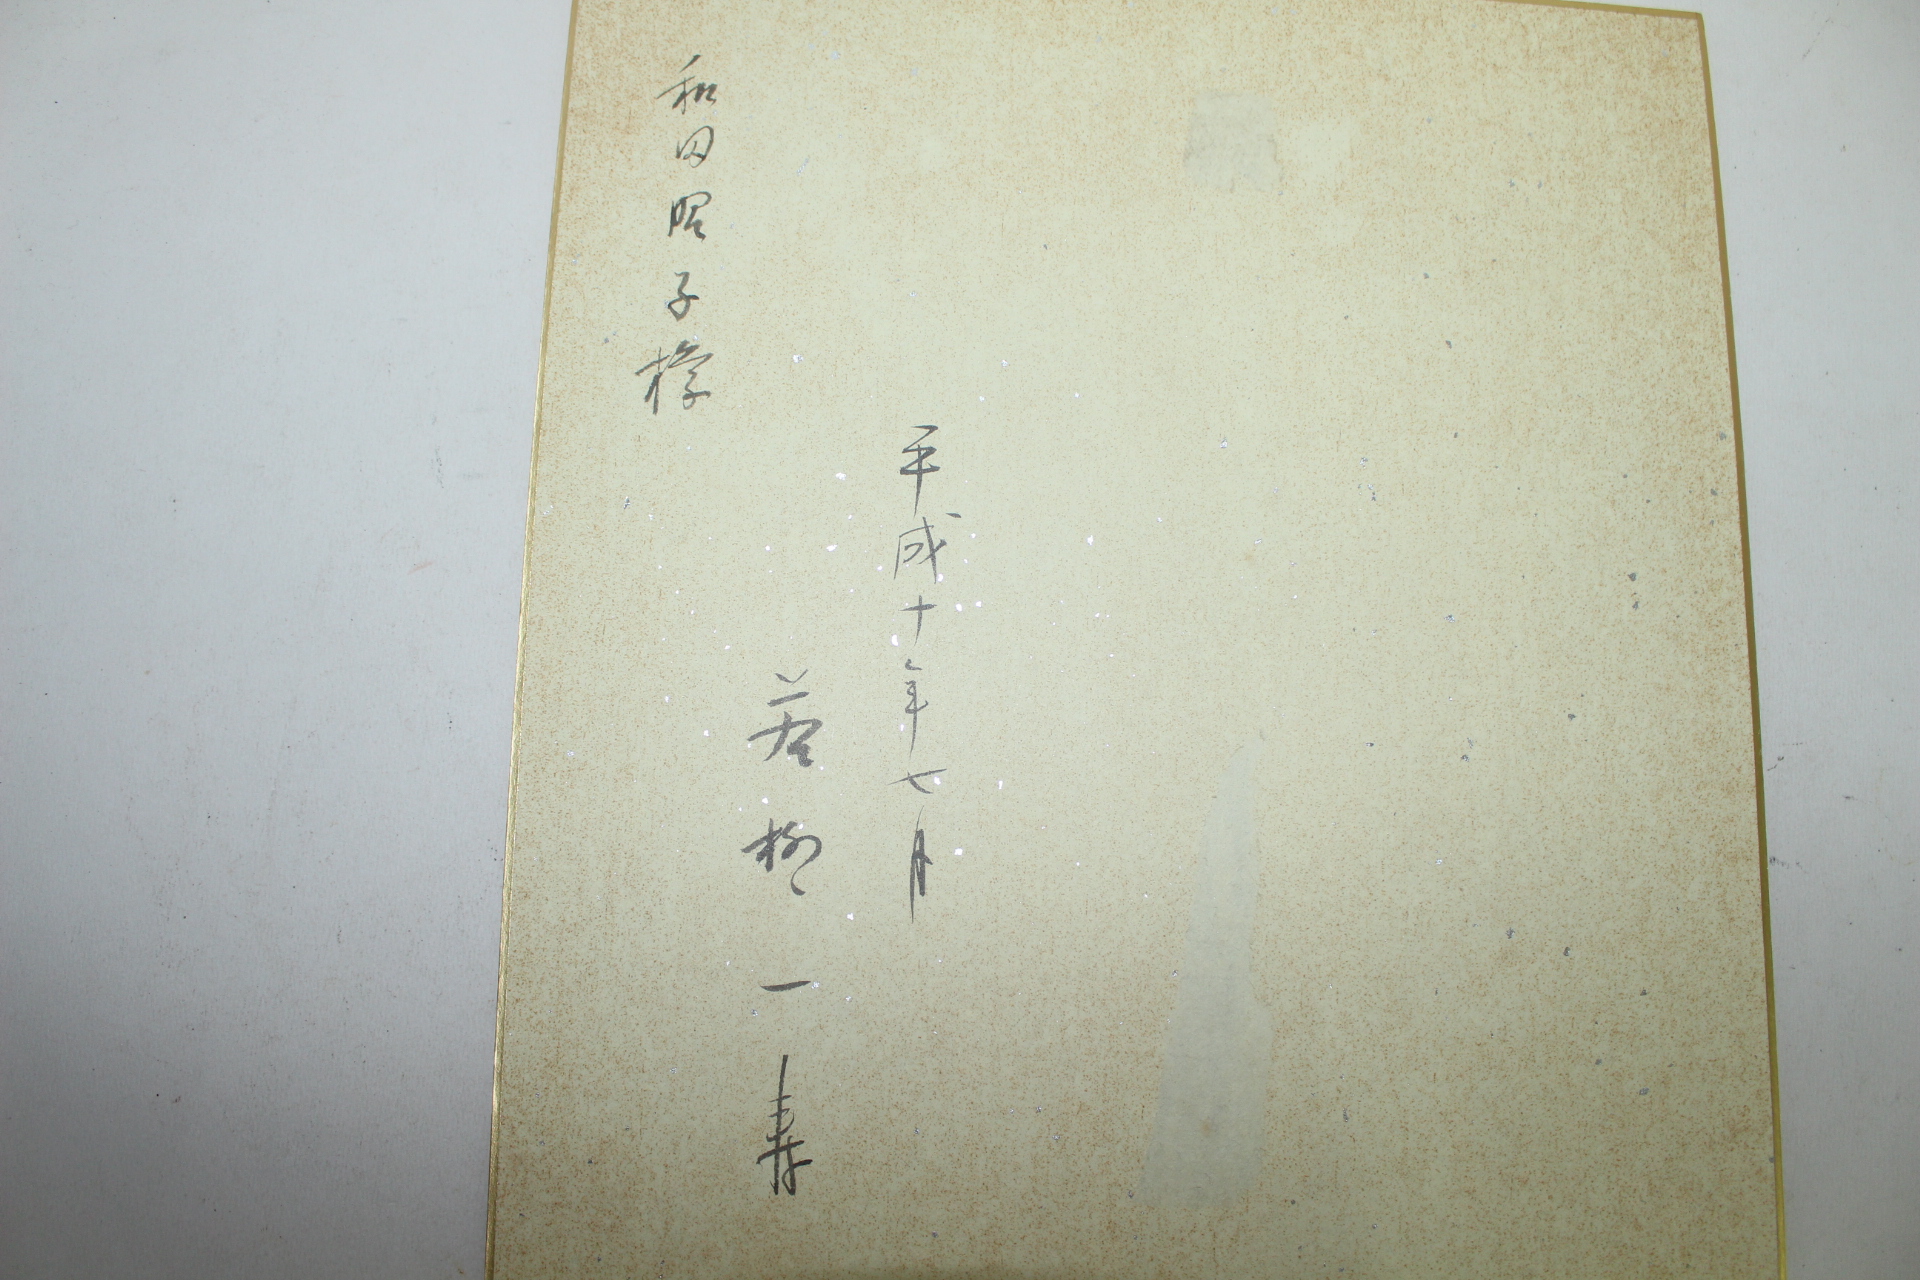 平成十年七月
若柳一寿
和田昭子様